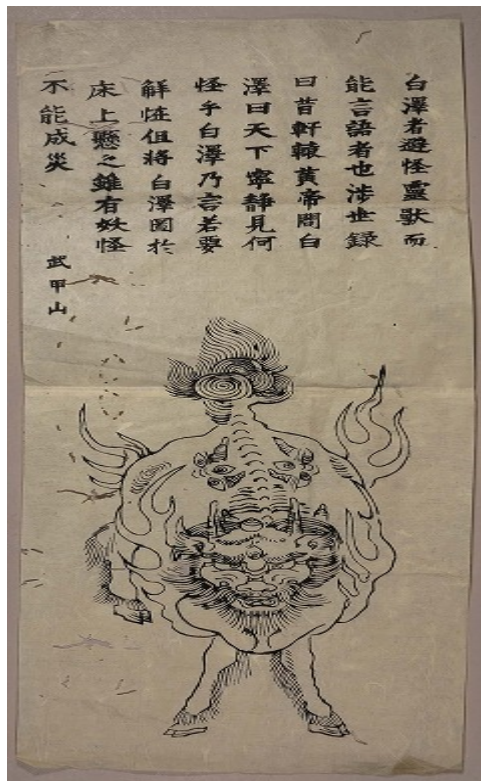 白澤者避怪靈獸而
能言語者也渉世録
曰昔軒轅黄帝問白
澤曰天下寧静見何
怪乎白澤乃言若要
觧恠但將白澤圖於
床上懸之雖有妖怪
不能成災
武甲山